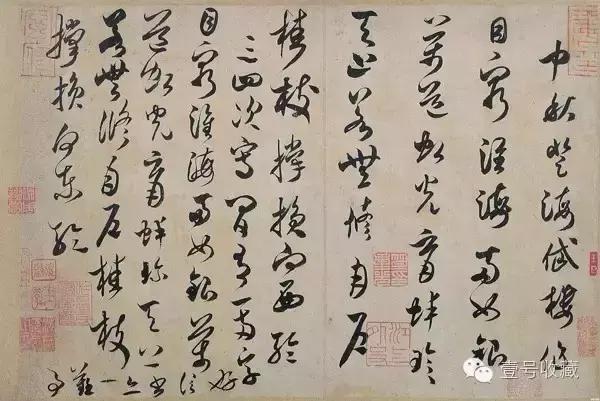 中秋登海岱樓作
目窮淮海兩如銀
萬道虹光育蚌珍
天上若無修月户
桂枝撐損向西輪
三四次寫間有一兩字
好信書亦一難事
目窮淮海兩如銀萬
道虹光育蚌珍天上
若無修月户桂枝
撐損向東輪
壹号收藏